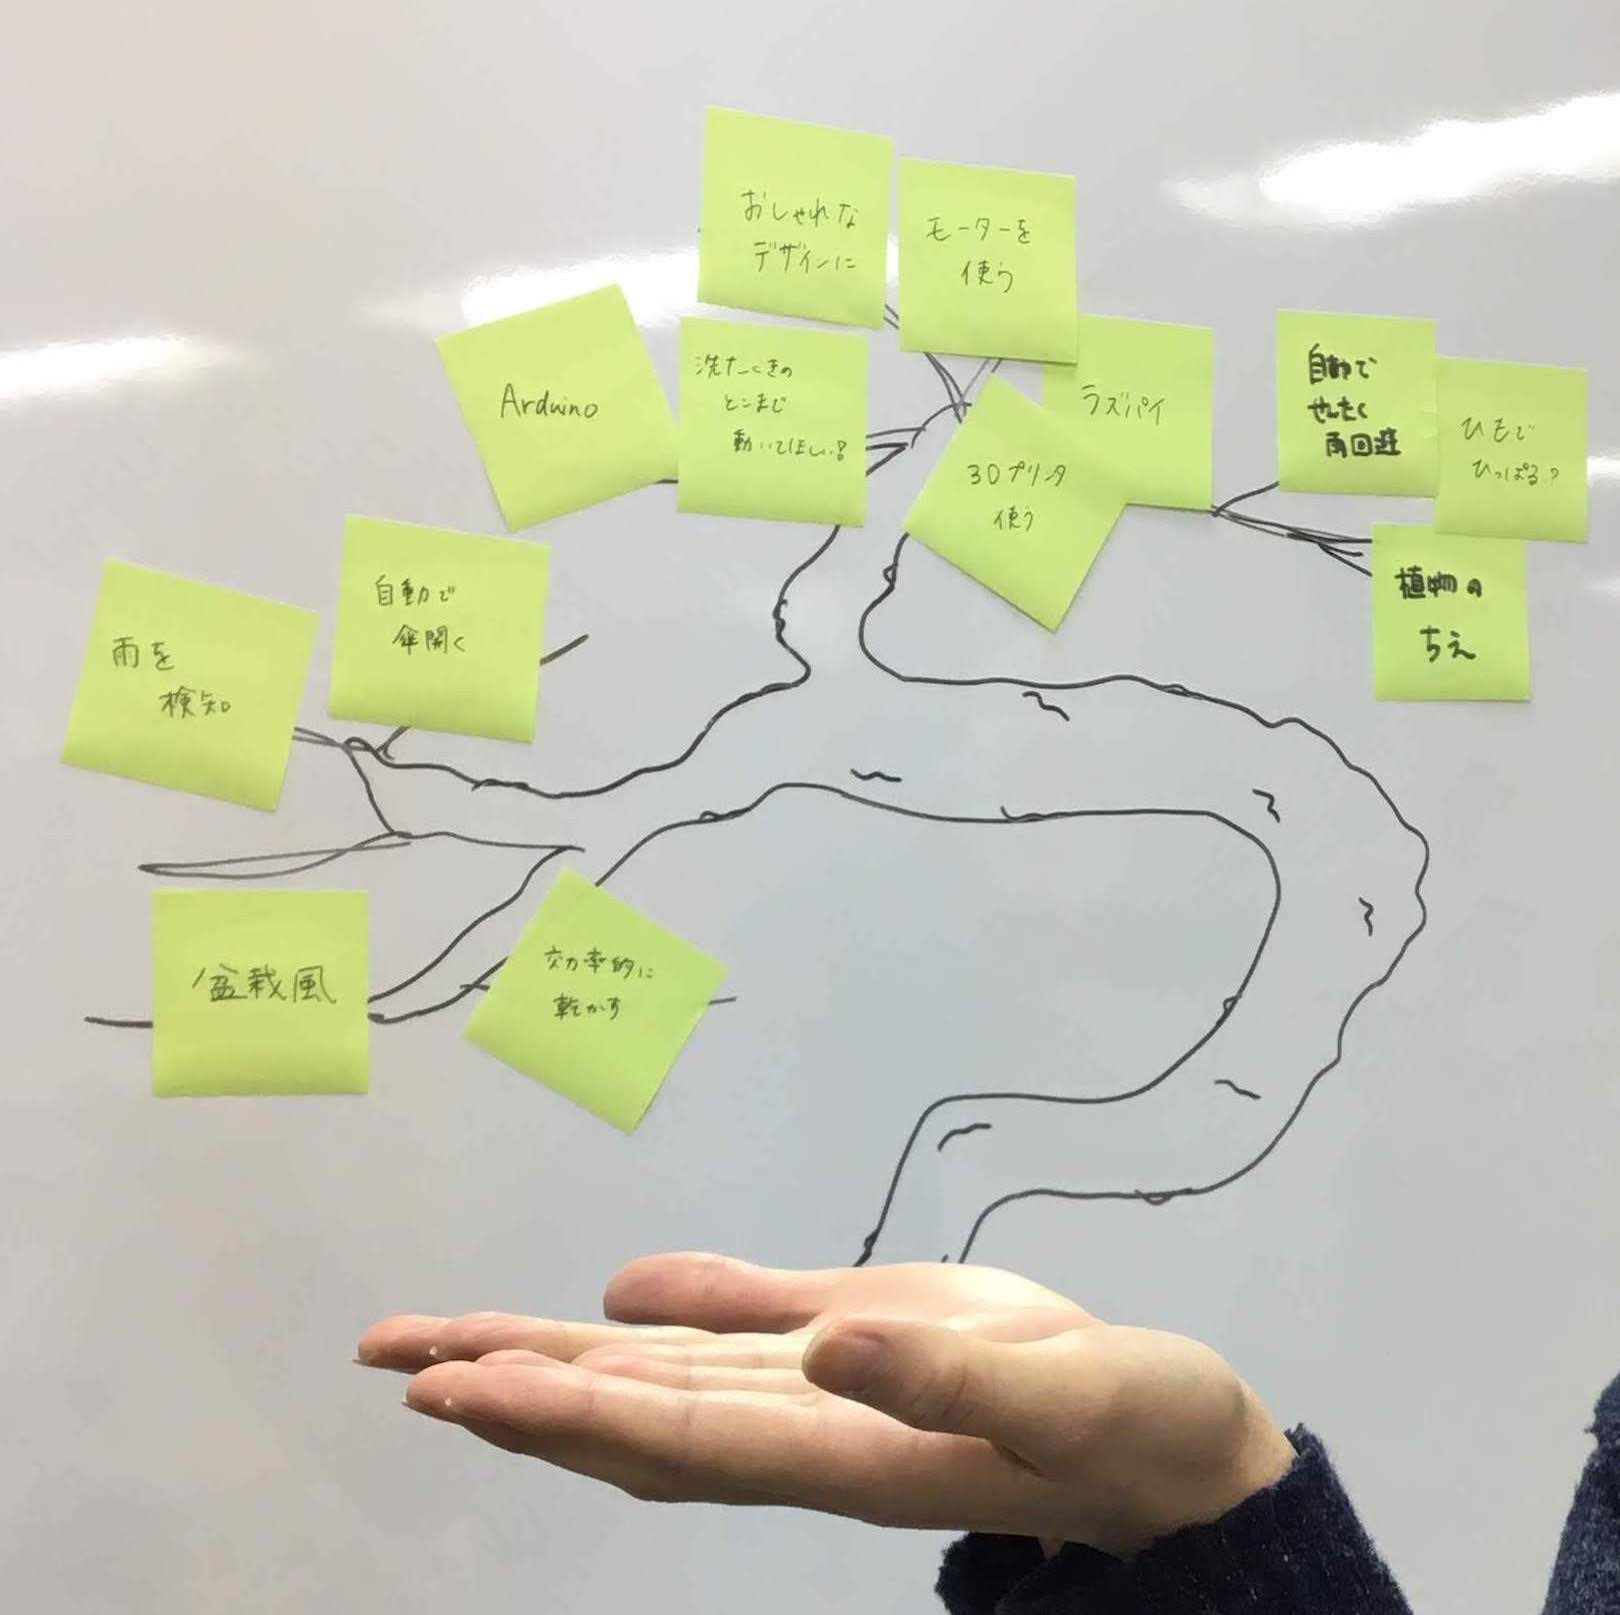 おしゃれな
デザインに
モーターを
使う
Arduino
洗たくきの
とこまで
動いてほしい?
ラズパイ
3Dプリンタ
使う
自動で
せんたく
雨回避
ひもで
ひっぱる?
植物の
ちえ
雨を
検知
自動で
傘開く
盆栽風
効率的に
乾かす